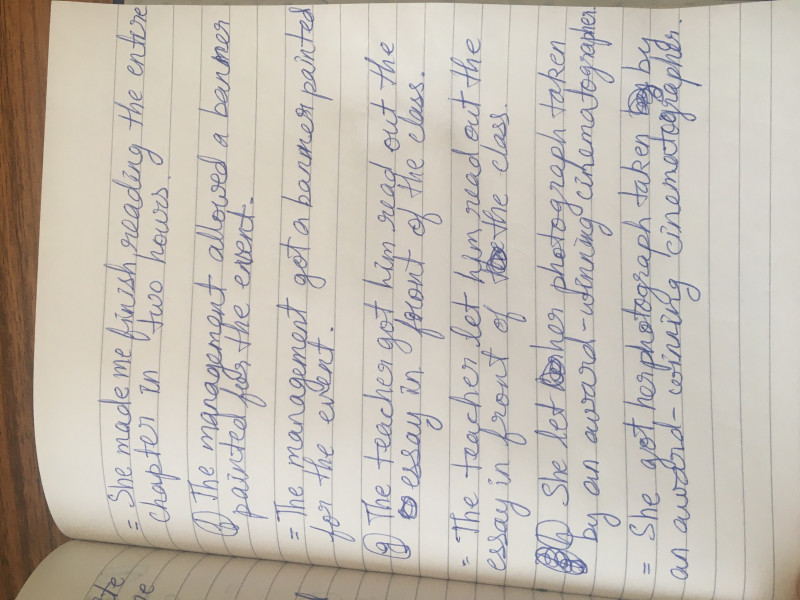 = She made me finish reading the entire
chapter in two hours.
f) The management allowed a banner
painted for the event.
= The management got a banner painted
for the event.
g) The teacher got him read out the
essay in front of the class.
= The teacher let him read out the
essay in front of the class.
h) She let her photograph taken
by an award-winning cinematographer.
= She got her photograph taken by
an award-winning cinematographer.